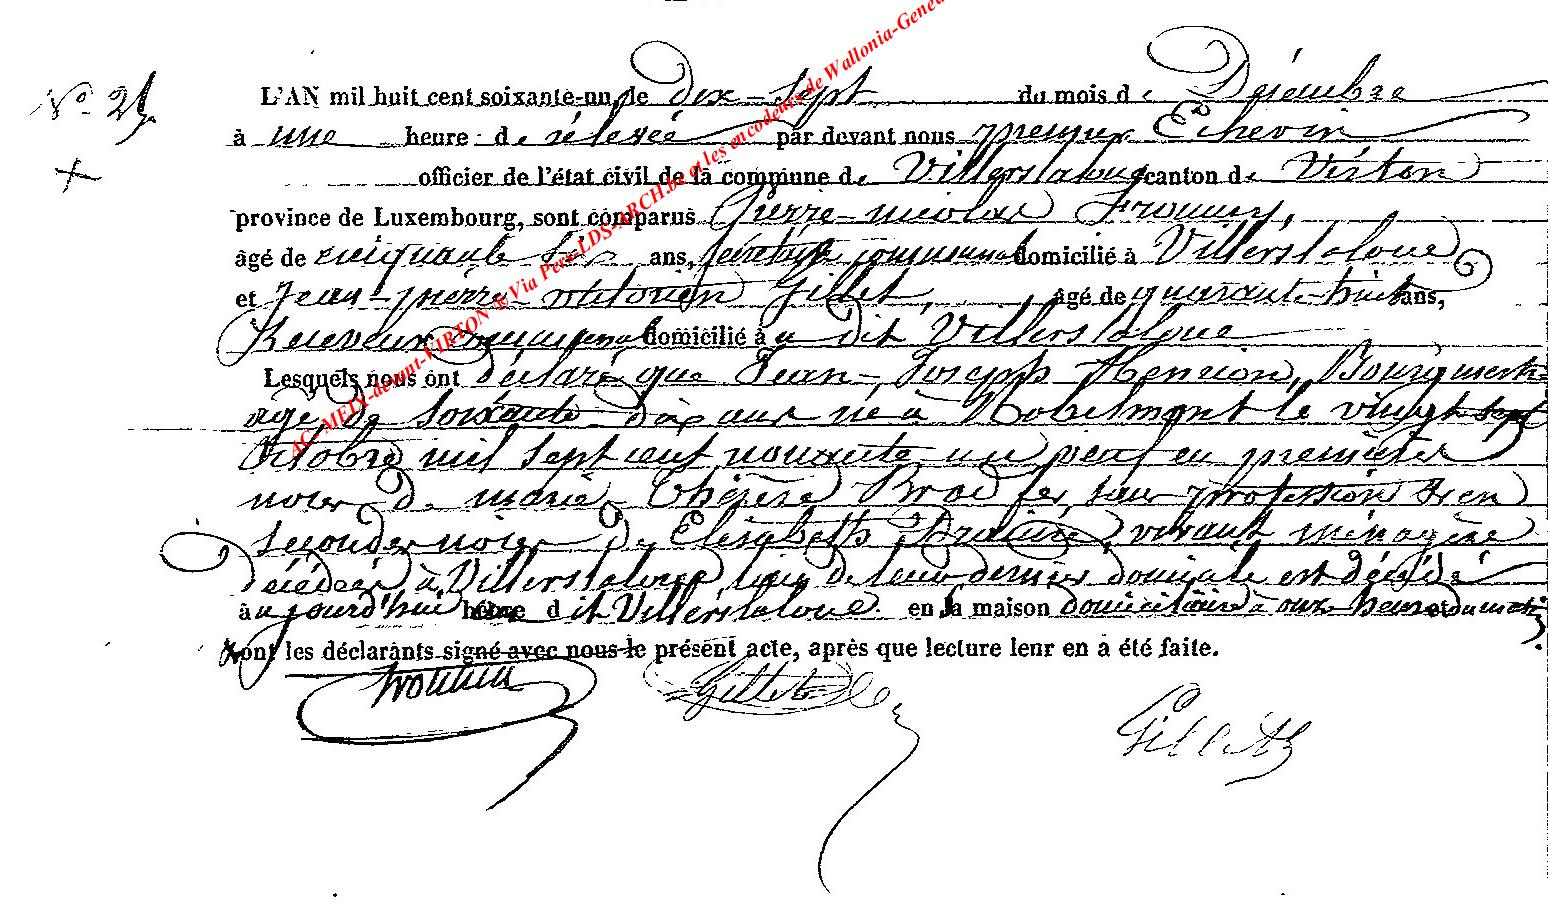 N° 25
L'AN mil huit cent soixante-un, le dix-sept du mois de Décembre
à une heure de rélevée par devant nous premier Echevin
officier de l'état civil de la commune de Villerslaloue canton de Virton
province de Luxembourg, sont comparus Pierre-nicolas
âgé de cinquante six ans, secrétaire communal domicilié à Villerslaloue
et Jean-pierre-victorien Gillet, âgé de quarante-huit ans,
Receveur communal domicilié à a dit Villerslaloue
Lesquels nous ont déclaré que Jean-Joseph Henrion, Bourgmestre
agé de soixante-dix ans né à Robelmont le vingt sept
octobre mil sept cent nonante un veuf en premières
noces de marie-Thérèse sans profession & en
secondes noces de Elisabeth vivant ménagère
décédées à Villerslaloue, lieu de leur dernier domicile est décédé
à aujourd'hui heure dit Villerslaloue en sa maison domiciliaire à onze heures du matin
Et ont les déclarants signé avec nous le présent acte, après que lecture leur en a été faite.
Gillet
Gillet
AC-MEIX-devant-VIRTON & Via Pers-LDS-ARCH.be et les encodeurs de Wallonia-Genea